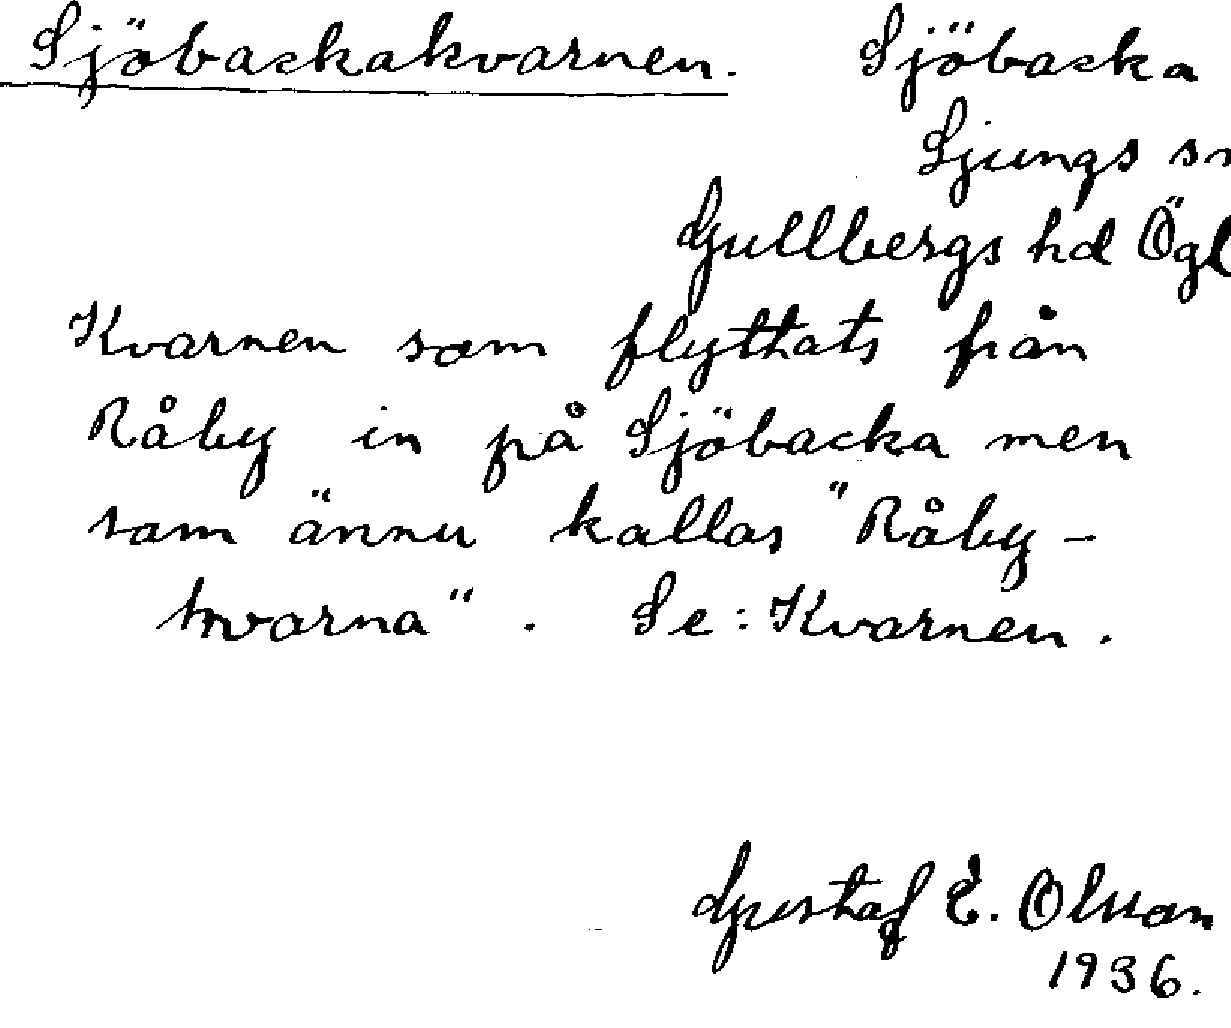 Sjöbackakvarnen. Sjöbacka
Ljungs sn
Gullbergs hd Ögl
Kvarnen som flyttats från
Råby in på Sjöbacka men
som ännu kallas "Råby-
kvarna". Se: Kvarnen.
Gustaf E. Olsson
1936.